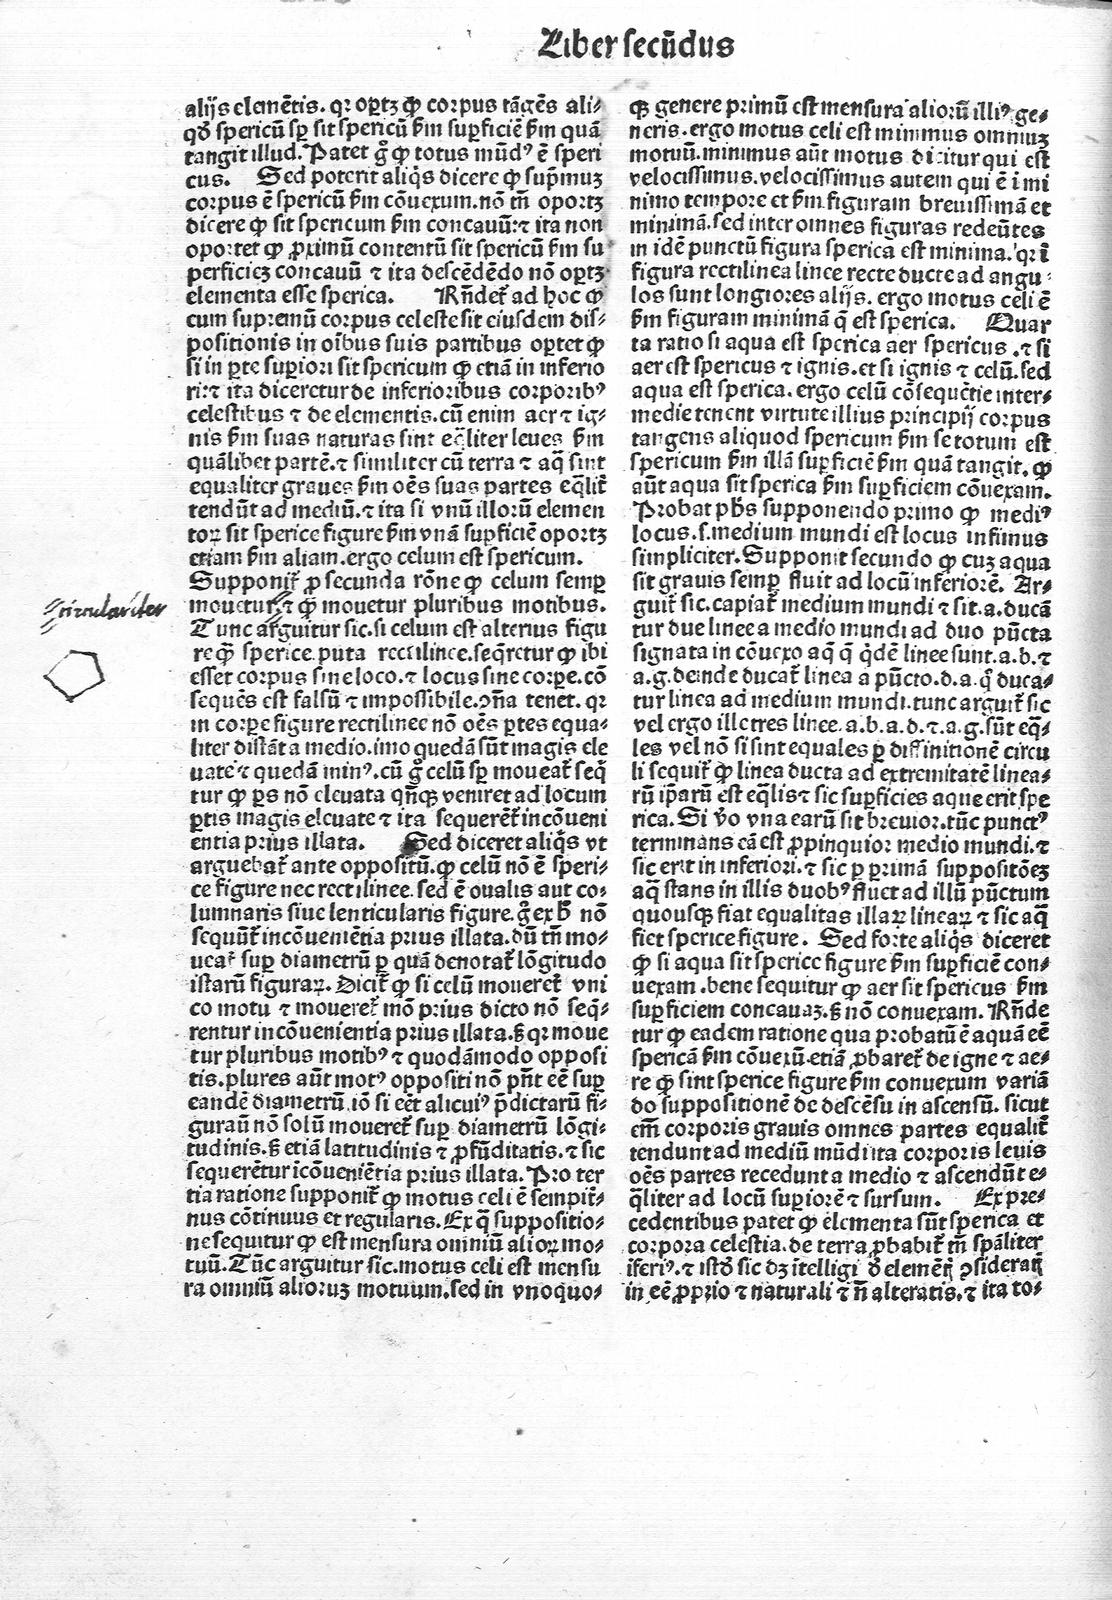 Liber secūdus
alijs elemētis. qr oꝑtꝫ ꝙ corpus tāgēs ali⸗
qd̄ spericū sꝑ sit spericū ẜm suꝑficiē ẜm quā
tangit illud. Patet g̊ ꝙ totus mūdꝰ ē speri
cus. Sed poterit aliq̄s dicere ꝙ sup̄muꝫ
corpus ē spericū ẜm cōuexum. nō tn̄ oportꝫ
dicere ꝙ sit spericum ẜm concauū: ⁊ ita non
oportet ꝙ ꝓximū contentū sit spericū ẜm su
perficieꝫ concauū ⁊ ita descēdēdo nō oꝑtꝫ
elementa esse sperica. Rn̄det᷑ ad hoc ꝙ
cum supremū corpus celeste sit eiusdem dis⸗
positionis in oībus suis partibus oꝑtet ꝙ
si in ꝑte suꝑiori sit spericum ꝙ etiā in inferio
ri: ⁊ ita diceretur de inferioribus corporibꝰ
celestibus ⁊ de elementis. cū enim aer ⁊ ig⸗
nis ẜm suas naturas sint eq̄liter leues ẜm
quālibet partē. ⁊ similiter cū terra ⁊ aq̄ sint
equaliter graues ẜm oēs suas partes eq̄lit᷑
tendūt ad mediū. ⁊ ita si vnū illorū elemen
toꝝ sit sperice figure ẜm vnā suꝑficiē oportꝫ
etiam ẜm aliam. ergo celum est spericum.
Supponit᷑ ꝓ secunda rōne ꝙ celum semꝑ
mouetur ⁊ ꝙ mouetur pluribus motibus.
circulariter
Tunc arguitur sic. si celum est alterius figu
re q̄ sperice puta rectilinee. seq̄retur ꝙ ibi
esset corpus sine loco. ⁊ locus sine corꝑe. cō
sequēs est falsū ⁊ impossibile. ꝯn̄a tenet. qr
in corꝑe figure rectilinee nō oēs ꝑtes equa⸗
liter distāt a medio. imo quedā sūt magis ele
uate ⁊ quedā minꝰ. cū g̊ celū sꝑ moueat᷑ seq̄
tur ꝙ ꝑs nō eleuata qn̄qꝫ veniret ad locum
ꝑtis magis eleuate ⁊ ita sequeret᷑ incōueni
entia prius illata. Sed diceret aliq̄s vt
arguebat᷑ ante oppositū. ꝙ celū nō ē speri⸗
ce figure nec rectilinee. sed ē oualis aut co⸗
lumnaris siue lenticularis figure. g̊ ex h̄ nō
sequūt᷑ incōueniētia prius illata. dū tn̄ mo⸗
ueat᷑ suꝑ diametrū ꝑ quā denotat᷑ lōgitudo
istarū figuraꝝ. Dicit᷑ ꝙ si celū moueret᷑ vni
co motu ⁊ moueret᷑ mō prius dicto nō seq̄⸗
rentur incōuenientia prius illata. ß qr moue
tur pluribus motibꝰ ⁊ quodāmodo opposi
tis. plures aūt motꝰ oppositi nō pn̄t eē suꝑ
eandē diametrū. iō si eēt alicuiꝰ p̄dictarū fi⸗
gurāū nō solū moueret᷑ suꝑ diametrū lōgi⸗
tudinis. ß etiā latitudinis ⁊ ꝓfūditatis. ⁊ sic
sequerētur īcōueniētia prius illata. Pro ter
tia ratione supponit᷑ ꝙ motus celi ē sempit᷑⸗
nus cōtinuus et regularis. Ex q̄ suppositio⸗
ne sequitur ꝙ est mensura omniū alioꝝ mo⸗
tuū. Tūc arguitur sic. motus celi est mensu
ra omniū alioruꝫ motuum. sed in vnoquo⸗
qꝫ genere primū est mensura aliorū illiꝰ ge⸗
neris. ergo motus celi est minimus omniuꝫ
motuū. minimus aūt motus dicitur qui est
velocissimus. velocissimus autem qui ē ī mi
nimo tempore et ẜm figuram breuissimā et
minimā. sed inter omnes figuras redeūtes
in idē punctū figura sperica est minima. qr ī
figura rectilinea linee recte ducte ad angu⸗
los sunt longiores alijs. ergo motus celi ē
ẜm figuram minimā q̄ est sperica. Quar
ta ratio si aqua est sperica aer spericus. ⁊ si
aer est spericus ⁊ ignis. et si ignis ⁊ celū. sed
aqua est sperica. ergo celū cōsequētie inter⸗
medie tenent virtute illius principij corpus
tangens aliquod spericum ẜm se totum est
spericum ẜm illā suꝑficiē ẜm quā tangit. ꝙ
aūt aqua sit sperica ẜm suꝑficiem cōuexam.
Probat ph̄s supponendo primo ꝙ mediꝰ
locus. s. medium mundi est locus infimus
simpliciter. Supponit secundo ꝙ cuꝫ aqua
sit grauis semꝑ fluit ad locū inferiorē. Ar⸗
guit᷑ sic. capiat᷑ medium mundi ⁊ sit. a. ducā
tur due linee a medio mundi ad duo pūcta
signata in cōuexo aq̄ q̄ q̄dē linee sunt. a. b. ⁊
a. g. deinde ducat᷑ linea a pūcto. d. a. q̄ duca⸗
tur linea ad medium mundi. tunc arguit᷑ sic
vel ergo ille tres linee. a. b. a. d. ⁊. a. g. sūt eq̄⸗
les vel nō si sint equales ꝑ diffinitionē circu
li sequit᷑ ꝙ linea ducta ad extremitatē linea⸗
rū ip̄arū est eq̄lis ⁊ sic suꝑficies aque erit spe
rica. Si v̄o vna earū sit breuior. tūc punctꝰ
terminans eā est ꝓpinquior medio mundi. ⁊
sic erit in inferiori. ⁊ sic ꝑ ꝑrimā suppositōeꝫ
aq̄ stans in illis duobꝰ fluet ad illū pūctum
quousqꝫ fiat equalitas illaꝝ lineaꝝ ⁊ sic aq̄
fiet sperice figure. Sed forte aliq̄s diceret
ꝙ si aqua sit sperice figure ẜm suꝑficiē con⸗
uexam. bene sequitur ꝙ aer sit spericus ẜm
suꝑficiem concauaꝫ. ß nō conuexam. Rn̄de
tur ꝙ eadem ratione qua probatū ē aquā eē
spericā ẜm cōuexū. etiā ꝓbaret᷑ de igne ⁊ ae⸗
re ꝙ sint sperice figure ẜm conuexum variā
do suppositionē de descēsu in ascensū. sicut
em̄ corporis grauis omnes partes equalit᷑
tendunt ad mediū mūdi ita corporis leuis
oēs partes recedunt a medio ⁊ ascendūt e⸗
q̄liter ad locū suꝑiorē ⁊ sursum. Ex pre⸗
cedentibus patet ꝙ elementa sūt sperica et
corpora celestia. de terra ꝓbabit᷑ tn̄ spāliter
īferiꝰ. ⁊ istd̄ sic dꝫ ītelligi d̄ elemētꝭ ꝯsideratꝭ
in eē ꝓpꝛio ⁊ naturali ⁊ n̄ alteratis. ⁊ ita to⸗